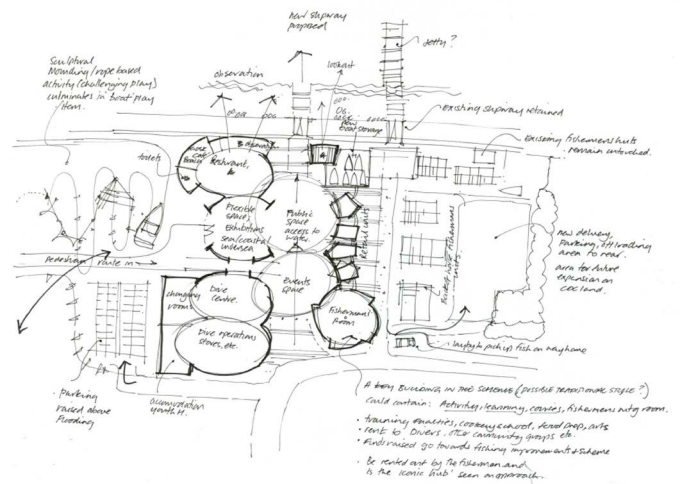 New slipway
proposed
Jetty?
Sculptural
Mounding/rope based
activity (challenging play)
culminates in 'boat' play
item.
observation
lookout
existing slipway retained
new
boat storage
Existing fishermens huts
remain untouched.
toilets
Restaurant,
Flexible
spaces
Exhibitions
sea/coastal
undersea
Public
space
access to
water
Retail units
new delivery,
parking, off loading
area to rear.
area for future
expansion on
CCC land.
Pedestrian route in
changing
rooms
Dive
centre.
Events
space
Fishermens
Room
Dive operations
stores, etc.
layby to pick up fish on way home
• parking
raised above
flooding
accomodation
youth H.
A key BUILDING IN THE SCHEMES (POSSIBLE TRADITIONAL STYLE?)
could contain: Activity, learning, courses, fishermens mtg room.
• training facilities, cookery school, food prep, arts
• rent to Divers, other community groups etc.
• Funds raised go towards fishing improvements & scheme
• Be rented out by the fisherman and
is the 'iconic hub' seen on approach.